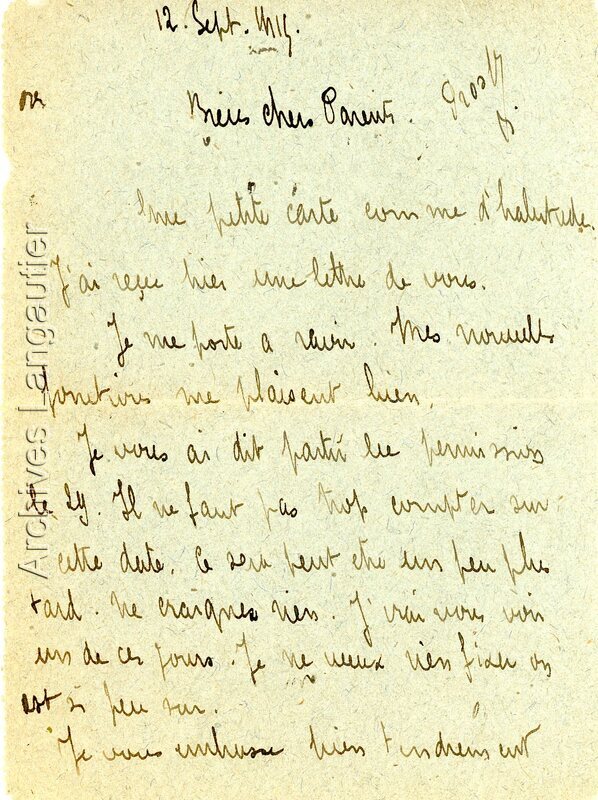 12. Sept.
Biens chers Parents.
Une petite carte comme d'habitude.
J'ai reçue hier une lettre de vous.
Je me porte a ravir. Mes nouvelles
fonctions me plaisent bien.
Je vous ai dit partir en permission
le 29. Il ne faut pas trop compter sur
cette date. Ce sera peut etre un peu plus
tard. Ne craignez rien. J'irai vous voir
un de ces jours. Je ne veux rien fixer on
est si peu sur.
Je vous embrasse bien tendrement
Archives Langautier